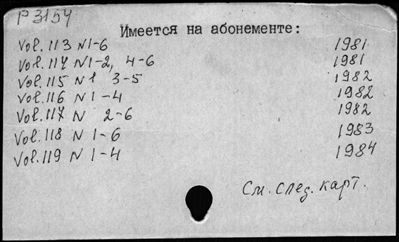 P 3154
Имеется на абонементе:
Vol. 113 N1-6 1981
Vol. 114 N1-2, 4-6 1981
Vol. 115 N1 3-5 1982
Vol. 116 N1-4 1982
Vol. 117 N 2-6 1982
Vol. 118 N 1-6 1983
Vol. 119 N 1-4 1984
См. след. карт.